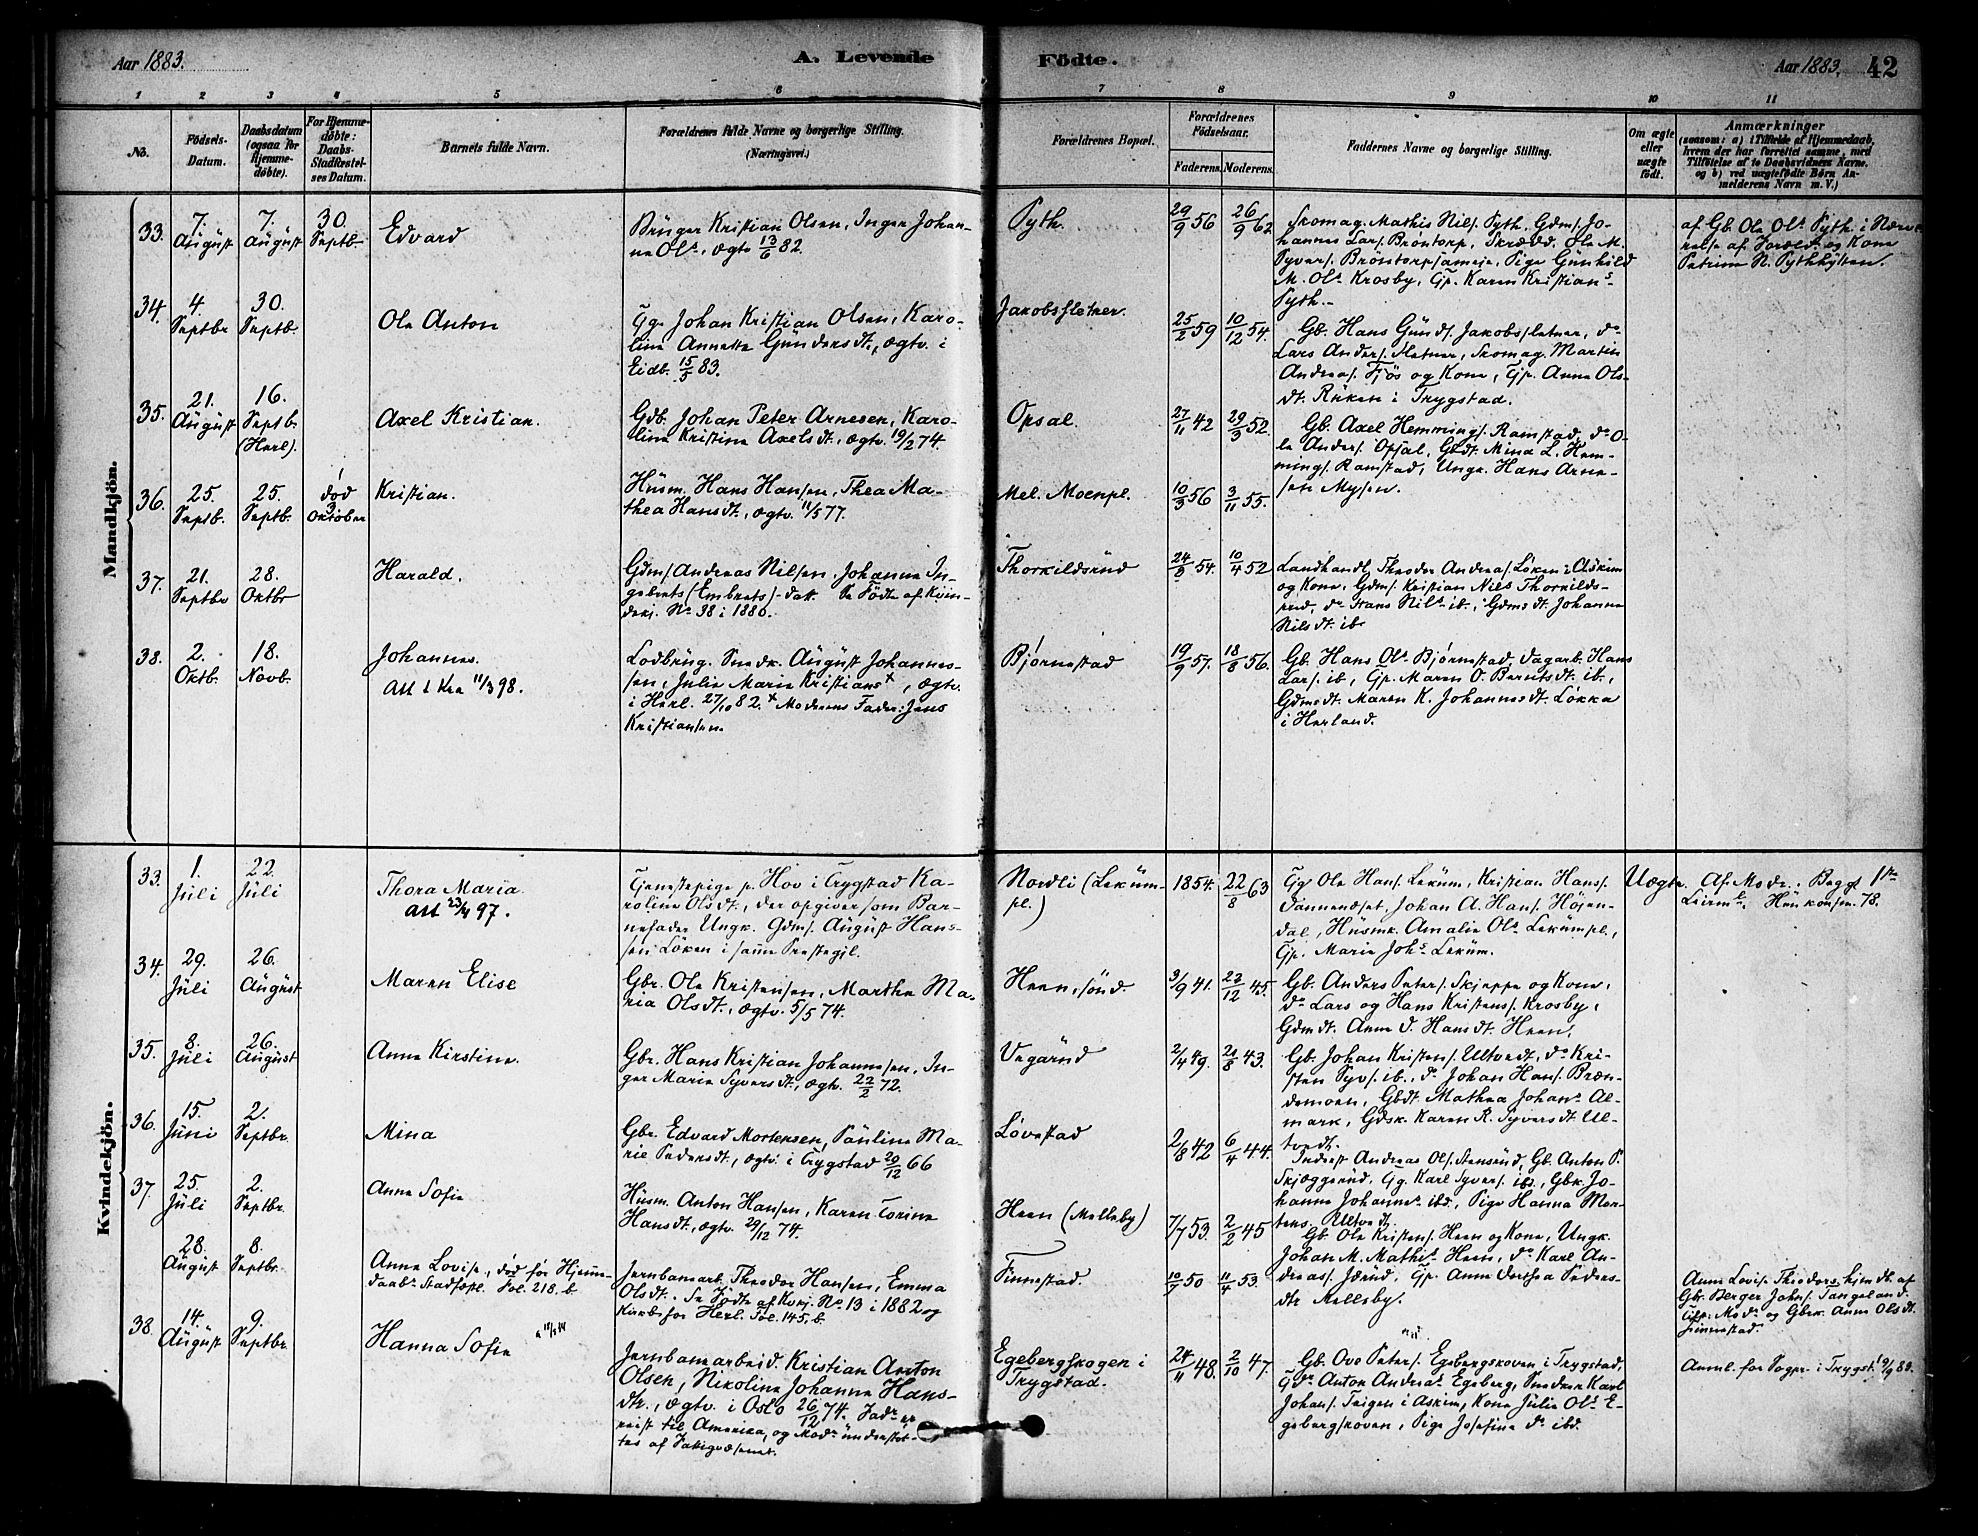 Aar 1883.
A. Levende
Födte.
Aar 1883. 42
1 2 3 4 5 6 7 8 9 10 11
No.
Födsels-
Datum.
Daabsdatum
(ogsaa for
Hjemme-
döbte).
For Hjemme-
döbte:
Daabs-
Stadfæstel-
ses Datum.
Barnets fulde Navn.
Forældrenes fulde Navne og borgerlige Stilling.
(Næringsvei.)
Forældrenes Bopæl.
Forældrenes
Födselsaar.
Faderens. Moderens.
Faddernes Navne og borgerlige Stilling.
Om ægte
eller
uægte
födt.
Anmærkninger
(saasom: a) i Tilfælde af Hjemmedaab,
hvem der har forrettet samme, med
Tilföielse af to Daabsvidners Navne.
og b) ved uægtefödte Börn An-
melderens Navn m. V.)
Mandkjön.
33.
7.
August
7.
August
30.
Septb
Edvard
Bruger Kristian Olsen, Inger Johan-
ne Ols., ægtv 13/6 82.
Pyth.
29/9 56
26/9 62
Skomag. Mathis Nils. Pyth. Gdms. Jo-
hannes Lars. Brøntorp, Skrædd. Ole M.
Syvers. Brøntorpsameie, Pige Gunhild
M. Ols. Krosby, Gp. Karen Kristians
Pyth.
af Gb. Ole Ols. Pyth. i Nærvæ-
relse af Foræld. og Kone
Petrine N. Pythhytten.
34.
4.
Septbr
30.
Septb.
Ole Anton
Gg. Johan Kristian Olsen, Karo-
line Annette Gundersdt., ægtv. i
Eidb. 15/5 83.
Jakobsfletner.
25/2 59
10/12 54.
Gb. Hans Gund. Jakobsfletner, do
Lars Anders. Fletner, Skomag. Martin
Andreas. Tjös og Kone, Gp. Anne Ols-
dt. Ruken i Trygstad.
35.
21.
August
16.
Septb.
(Herl).
Axel Kristian.
Gdb. Johan Peter Arnesen, Karo-
line Kristine Axelsdt., ægtv. 19/2 74.
Opsal.
27/11 42
29/3 52.
Gb. Axel Hemmings. Ramstad, do O-
le Anders. Opsal, Gbdt. Mina L. Hem-
mings. Ramstad, Ungk. Hans Arne-
sen Mysen.
36.
25.
Septb.
25.
Septb.
død
3
Oktober
Kristian.
Husm. Hans Hansen, Thea Ma-
thea Hansdt., ægtv. 11/5 77.
Mel. Moenpl.
10/3 56
3/11 55.
37.
21.
Septbr
28.
Oktbr
Harald.
Gdms. Andreas Nilsen, Johanne In-
gebrets (Embrets)-datt. Se Födte af Kvin-
dekj. No 38 i 1880.
Thorkildsrud
24/8 54.
10/4 52
Landhandl. Theodor Andreas. Løken i Askim
og Kone, Gdms. Kristian Nils. Thorkilds-
rud, do Hans Nils. ib., Gdmsdt. Johanne
Nilsdt. ib.
38.
2.
Oktb.
18.
Novb.
Johannes.
Att t Kra 11/3 98.
Lodbrug. Snedk. August Johannes-
sen, Julie Marie Kristians x, ægtv.
i Herl. 27/10 82. x Moderens Fader: Jens
Kristiansen.
Bjørnestad
19/9 57.
18/8 56.
Gb. Hans Ols. Bjørnestad, Dagarb. Hans
Lars. ib, Gp. Maren O. Berntsdt. ib.,
Gdmsdt. Maren K. Johannesdt. Løkka
i Herland.
Kvindekjön.
33.
1.
Juli
22.
Juli
Thora Maria
att 23/4 97.
Tjenestepige p. Hov i Trygstad Ka-
roline Olsdt., der opgiver som Bar-
nefader Ungk. Gdms. August Hans-
sen Løken i samme Prestegjl.
Nordli (Lekum-
pl.)
1854.
22/8 63
Gg Ole Hans. Lekum, Kristian Hans.
Dannenæset, Johan A. Hans. Højen-
dal, Husmk. Amalie Ols. Lekumpl.,
Gp. Marie Johs. Lekum.
Uægte.
Af Modr.: Begges 1ste
Leierm. Henkonsen. 78.
34.
29.
Juli
26.
August
Maren Elise
Gbr. Ole Kristensen, Marthe Ma-
ria Olsdt., ægtv. 5/5 74.
Heen, sønd.
3/9 41.
22/12 45.
Gb. Anders Peters. Skjeppe og Kone,
do Lars og Hans Kristens. Krosby,
Gdmdt. Anne D. Hansdt. Heen.
35.
8.
Juli
26.
August
Anne Kirstine.
Gbr. Hans Kristian Johannesen, In-
ger Marie Syversdt., ægtv. 22/2 72.
Vegarud
2/4 49.
21/8 43.
Gb. Johan Kristens. Ultvedt, do Kri-
sten Syvs. ib., do Johan Hans. Bræn-
demoen, Gbdt. Mathea Johans. Al-
mark, Gdsk. Karen R. Syversdt. Ul-
tvedt.
36.
15.
Juni
2.
Septbr.
Mina
Gbr. Edvard Mortensen, Pauline Ma-
rie Pedersdt., ægtv. i Trygstad 29/12 66
Løvestad
2/8 42
6/4 44.
Inderst Andreas Ols. Stensrud, Gb. Anton P.
Skjæggerud, Gg. Karl Syvers. ibd., Gbk. Jo-
hanne Johannes. ibd., Pige Hanna Mor-
tens. Ultvedt.
37.
25.
Juli
2.
Septbr.
Anne Sofie
Husm. Anton Hansen, Karen Torine
Hansdt., ægtv. 29/12 74.
Heen (Melleby)
7/7 53.
2/2 45
Gb. Ole Kristens. Heen og Kone, Ungk.
Johan M. Mathis. Heen, do Karl An-
dreas. Jærud, Gp. Anne Dorthea Peders-
dtr Melleby.
28.
August
8.
Septbr.
Anne Lovise, død før Hjemme-
daabs Stadfæst. Fol. 218. b
Jernbanearb. Theodor Hansen, Emma
Olsdt. Se Födte af Kvkj. No 13 i 1882 og
Kirkeb. for Herl. Fol. 145, b.
Finnestad.
10/9 50
11/4 53.
Anne Lovise Theodors. hjemdt. af
Gb. Berger Johs. Tangeland.
Tilst: Modr. og Gbrk. Anne Olsdt.
Finnestad.
38.
14.
August
9.
Septbr.
Hanna Sofie
Jernbanearbeid. Kristian Anton
Olsen, Nikoline Johanne Hans-
dtr., ægtv. i Oslo 26/12 74. Fadr er
reist til Amerika, og Modr understøt-
tes af Fattigvæsenet.
Egebergskogen i
Trygstad.
24/11 48.
2/10 47.
Gb. Ove Peters. Egebergskoven i Trygstad,
Gdr Anton Andreas. Egeberg, Snedker Karl
Johans. Treigen i Askim, Kone Julie Ols. E-
gebergskoven, Pige Josefine do ibd.
Anml. for Sogpr. i Trygst. 19/9 83.